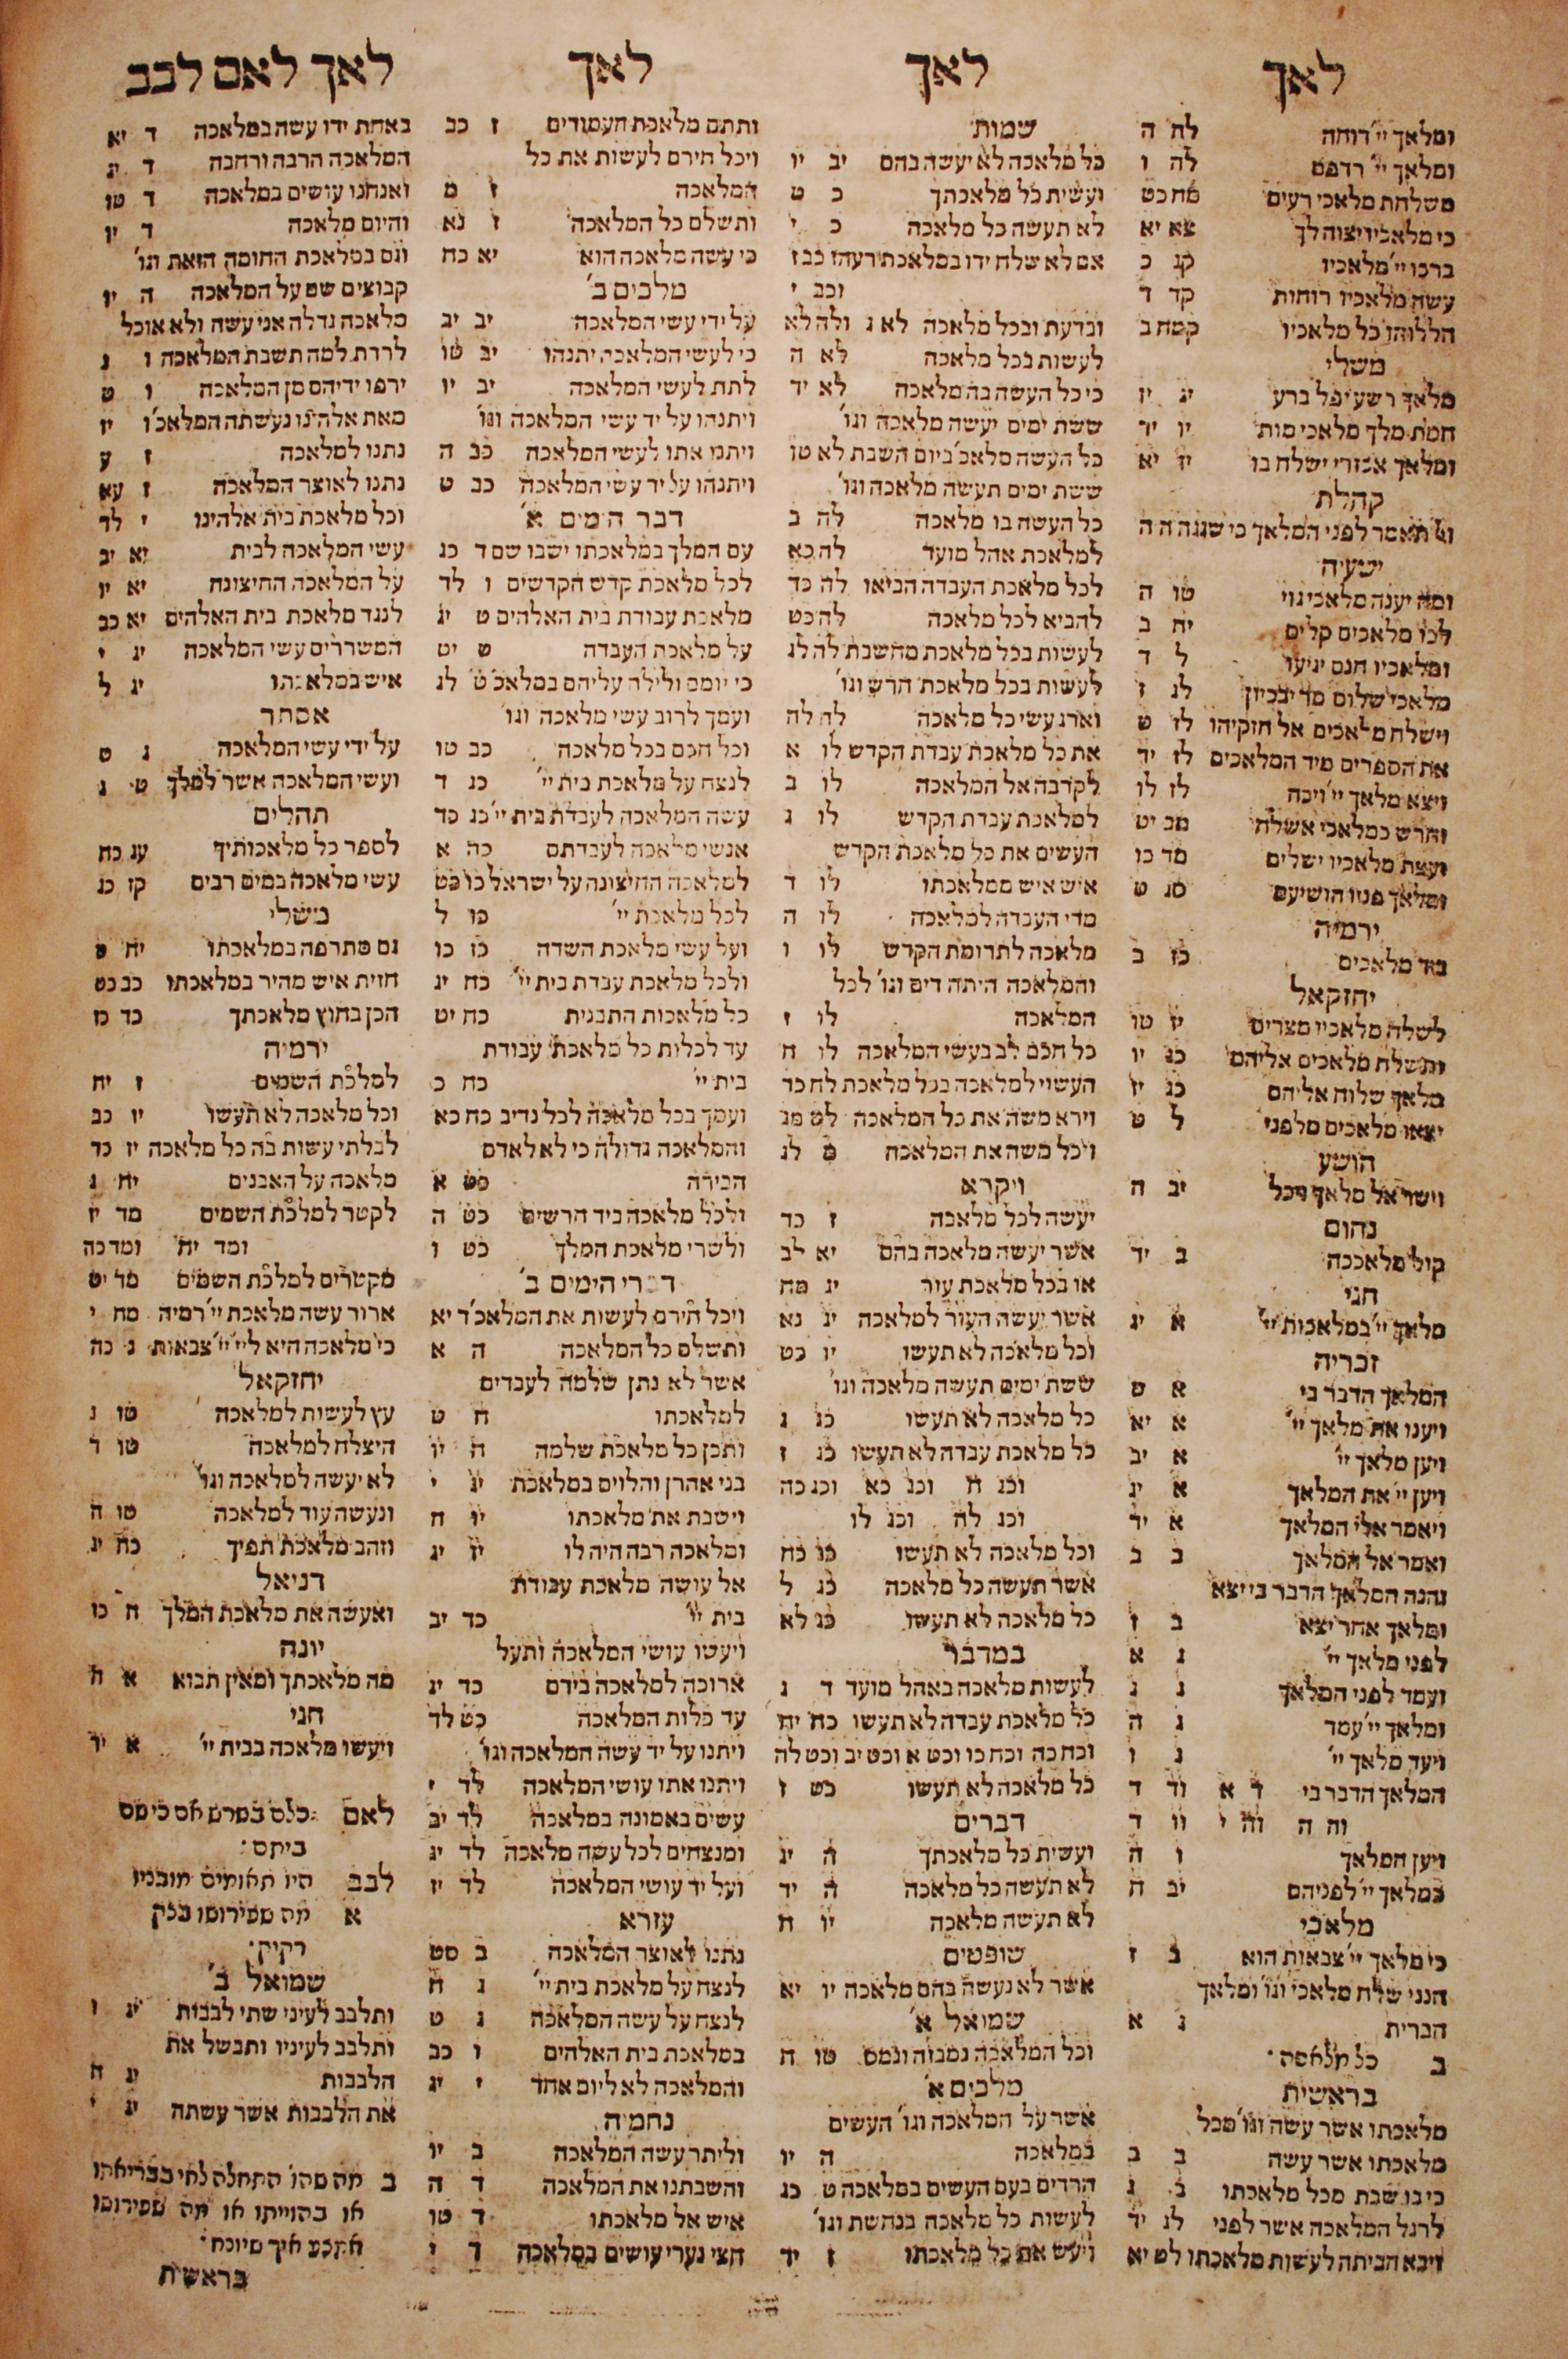 לאך
ומלאך יי׳ דוחה לה ה
ומלאך יי׳ רדפם לה ו
משלחת מלאכי רעים עח כט
כי מלאכיו יצוה לך צא יא
ברכו יי׳ מלאכיו קג כ
עשה מלאכיו רוחות קד ד
הללוהו כל מלאכיו קמח ב
משלי
מלאך רשע יפל ברע יג יז
חמת מלך מלאכי מות יו יד
ומלאך אכזרי ישלח בו יז יא
קהלת
ולא תאמר לפני המלאך כי שגגה ה ה
ישעיה
ומה יענה מלאכי גוי
לכו מלאכים קלים יח ב
ומלאכיו חנס יגיעו ל ד
מלאכי שלום מר יבכיון לג ז
וישלח מלאכים אל חזקיהו לז ט
את הספרים מיד המלאכים לז יד
ויצא מלאך יי׳ ויכה לז לו
וחרש כמלאכי אשלח מב יט
ועצת מלאכיו ישלים מד כו
ומלאך פניו הושיעם סג ט
ירמיה
ביד מלאכים כז ב
יחזקאל
לשלח מלאכיו מצרים יז טו
ותשלח מלאכים אליהם כג יו
מלאך שלוח אליהם
יצאו מלאכים מלפני ל ט
הושע
וישר אל מלאך ויכל יב ה
נחום
קול מלאככה ב יד
חגי
מלאך יי׳ במלאכות יי׳ א יג
זכריה
המלאך הדבר בי א ט
ויענו את מלאך יי׳ א יא
ויען מלאך יי׳ א יב
ויען יי׳ את המלאך א יג
ויאמר אלי המלאך א יד
ואמר אל המלאך ב ב
והנה המלאך הדבר בי יצא
ומלאך אחר יצא ב ז
לפני מלאך יי׳ ג א
ועמד לפני המלאך ג ג
ומלאך יי׳ עמד ג ה
ויעד מלאך יי׳ ג ו
המלאך הדבר בי ד א וד ד
וה ה וה י וו ד
ויען המלאך ו ה
כמלאך יי׳ לפניהם יב ח
מלאכי
כי מלאך יי׳ צבאות הוא ב ז
הנני שלח מלאכי וגו׳ ומלאך
הברית ג א
ב כל מלאכה
בראשית
מלאכתו אשר עשה וגו׳ מכל
מלאכתו אשר עשה ב ב
כי בו שבת מכל מלאכתו ב ג
לרגל המלאכה אשר לפני לג יד
ויבא הביתה לעשות מלאכתו לט יא
לאך
שמות
כל מלאכה לא יעשה בהם יב יו
ועשית כל מלאכתך כ ט
לא תעשה כל מלאכה כ י
אם לא שלח ידו במלאכת רעהו כב ז
וכב י
ובדעת ובכל מלאכה לא ג ולה לא
לעשות בכל מלאכה לא ה
כי כל העשה בה מלאכה לא יד
ששת ימים יעשה מלאכה וגו׳
כל העשה מלאכ׳ ביום השבת לא טו
ששת ימים תעשה מלאכה וגו׳
כל העשה בו מלאכה לה ב
למלאכת אהל מועד לה כא
לכל מלאכת העבדה הביאו לה כד
להביא לכל מלאכה לה כט
לעשות בכל מלאכת מחשבת לה לג
לעשות בכל מלאכת חרש וגו׳
וארג עשי כל מלאכה לה לה
את כל מלאכת עבדת הקדש לו א
לקרבה אל המלאכה לו ב
למלאכת עבדת הקדש לו ג
העשים את כל מלאכת הקדש
איש איש ממלאכתו לו ד
מדי העבדה למלאכה לו ה
מלאכה לתרומת הקדש לו ו
והמלאכה היתה דים וגו׳ לכל
המלאכה לו ז
כל חכם לב בעשי המלאכה לו ח
העשוי למלאכה בכל מלאכת לח כד
וירא משה את כל המלאכה לט מג
ויכל משה את המלאכה מ לג
ויקרא
יעשה לכל מלאכה ז כד
אשר יעשה מלאכה בהם יא לב
או בכל מלאכת עור יג מח
אשר יעשה העור למלאכה יג נא
וכל מלאכה לא תעשו יו כט
ששת ימים תעשה מלאכה וגו׳
כל מלאכה לא תעשו כג ג
כל מלאכת עבדה לא תעשו כג ז
וכג ח וכג כא וכג כה
וכג לה וכג לו
וכל מלאכה לא תעשו כג כח
אשר תעשה כל מלאכה כג ל
כל מלאכה לא תעשו כג לא
במדבר
לעשות מלאכה באהל מועד ד ג
כל מלאכת עבדה לא תעשו כח יח
וכח כה וכח כו וכט א וכט יב וכט לה
כל מלאכה לא תעשו כט ז
דברים
ועשית כל מלאכתך ה יג
לא תעשה כל מלאכה ה יד
לא תעשה מלאכה יו ח
שופטים
אשר לא נעשה בהם מלאכה יו יא
שמואל א׳
וכל המלאכה נמבזה ונמס טו ח
מלכים א׳
אשר על המלאכה וגו׳ העשים
במלאכה ה יו
הרדים בעם העשים במלאכה ט כג
לעשות כל מלאכה בנחשת וגו׳
ויעש את כל מלאכתו ז יד
לאך
ותתם מלאכת העמודים ז כב
ויכל חירם לעשות את כל
המלאכה ז מ
ותשלם כל המלאכה ז נא
כי עשה מלאכה הוא יא כח
מלכים ב׳
על ידי עשי המלאכה יב יב
כי לעשי המלאכה יתנהו יב טו
לתת לעשי המלאכה יב יו
ויתנהו על יד עשי המלאכה וגו׳
ויתנו אתו לעשי המלאכה כב ה
ויתנהו על יד עשי המלאכה כב ט
דבר הימים א׳
עם המלך במלאכתו ישבו שם ד כג
לכל מלאכת קדש הקדשים ו לד
מלאכת עבודת בית האלהים ט יג
על מלאכת העבדה ט יט
כי יומם ולילה עליהם במלאכ׳ ט לג
ועמך לרוב עשי מלאכה וגו׳
וכל חכם בכל מלאכה כב טו
לנצח על מלאכת בית יי׳ כג ד
עשה המלאכה לעבדת בית יי׳ כג כד
אנשי מלאכה לעבדתם כה א
למלאכה החיצונה על ישראל כו כט
לכל מלאכת יי׳ כו ל
ועל עשי מלאכת השדה כז כו
ולכל מלאכת עבדת בית יי׳ כח יג
כל מלאכות התבנית כח יט
עד לכלות כל מלאכת עבודת
בית יי׳ כח כ
ועמך בכל מלאכה לכל נדיב כח כא
והמלאכה גדולה כי לא לאדם
הבירה כט א
ולכל מלאכה ביד חרשים כט ה
ולשרי מלאכת המלך כט ו
דברי הימים ב׳
ויכל חירם לעשות את המלאכ׳ ד יא
ותשלם כל המלאכה ה א
אשר לא נתן שלמה לעבדים
למלאכתו ח ט
ותכן כל מלאכת שלמה ח יו
בני אהרן והלוים במלאכת יג י
וישבת את מלאכתו יו ה
ומלאכה רבה היה לו יז יג
אל עושה מלאכת עבודת
בית יי׳ כד יב
ויעשו עושי המלאכה ותעל
ארוכה למלאכה בידם כד יג
עד כלות המלאכה כט לד
ויתנו על יד עשה המלאכה וגו׳
ויתנו אתו עושי המלאכה לד י
עשים באמונה במלאכה לד יב
ומנצחים לכל עשה מלאכה לד יג
ועל יד עושי המלאכה לד יז
עזרא
נתנו לאוצר המלאכה ב סט
לנצח על מלאכת בית יי׳ ג ח
לנצח על עשה המלאכה ג ט
במלאכת בית האלהים ו כב
והמלאכה לא ליום אחד י יג
נחמיה
וליתר עשה המלאכה ב יו
והשבתנו את המלאכה ד ה
איש אל מלאכתו ד טו
חצי נערי עושים במלאכה ד י
לאך לאם לבב
באחת ידו עשה במלאכה ד יא
המלאכה הרבה ורחבה ד יג
ואנחנו עושים במלאכה ד טו
והיום מלאכה ד יו
וגם במלאכת החומה הזאת וגו׳
קבוצים שם על המלאכה ה יו
מלאכה גדלה אני עשה ולא אוכל
לרדת למה תשבת המלאכה ו ג
ירפו ידיהם מן המלאכה ו ט
מאת אלהינו נעשתה המלאכ׳ ו יו
נתנו למלאכה ז ע
נתנו לאוצר המלאכה ז עא
וכל מלאכת בית אלהינו י לד
עשי המלאכה לבית יא יב
על המלאכה החיצונה יא יו
לנגד מלאכת בית האלהים יא כב
המשררים עשי המלאכה יג י
איש במלאכתו יג ל
אסתר
על ידי עשי המלאכה ג ט
ועשי המלאכה אשר למלך ט ג
תהלים
לספר כל מלאכותיך עג כח
עשי מלאכה במים רבים קז כג
משלי
גם מתרפה במלאכתו יח ט
חזית איש מהיר במלאכתו כב כט
הכן בחוץ מלאכתך כד כז
ירמיה
למלכת השמים ז יח
וכל מלאכה לא תעשו יז כב
לבלתי עשות בה כל מלאכה יז כד
מלאכה על האבנים יח ג
לקטר למלכת השמים מד יז
ומד יח ומד כה
מקטרים למלכת השמים מד יט
ארור עשה מלאכת יי׳ רמיה מח י
כי מלאכה היא ליי׳ יי׳ צבאות נ כה
יחזקאל
עץ לעשות למלאכה טו ג
היצלח למלאכה טו ד
לא יעשה למלאכה וגו׳
ונעשה עוד למלאכה טו ה
וזהב מלאכת תפיך כח יג
דניאל
ואעשה את מלאכת המלך ח כז
יונה
מה מלאכתך ומאין תבוא א ח
חגי
ויעשו מלאכה בבית יי׳ א יד
לאם כלם בשרש אם כי הם
ביתם:
לבב היו תאומים מובנים
א מה שפירושו בצק
רקיק
שמואל ב׳
ותלבב לעיני שתי לבבות יג ו
ותלבב לעיניו ותבשל את
הלבבות יג ח
את הלבבות אשר עשתה יג י
ב מה שהוא התחלה לחי בבריאתו
או בהוייתו או מה שפירושו
בראשית